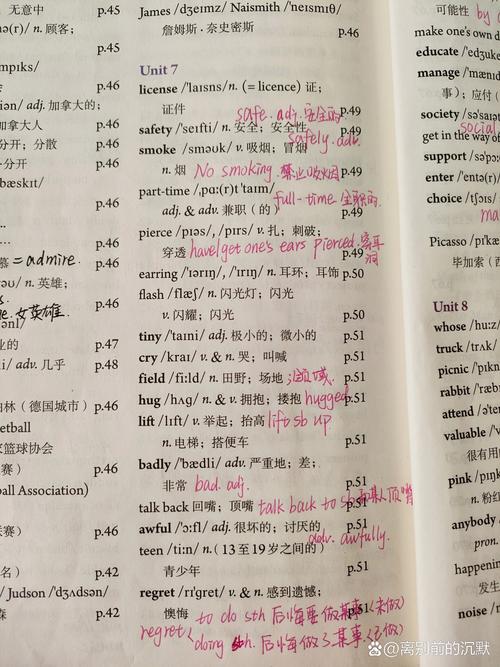 无意中 p.45
ə(r)/ n. 顾客；
p.45
mpɪks/
p.46
iən/ adj. 加拿大的；
加拿大人 p.46
分开；分散 p.46
分开 p.46
bæskɪt/
p.46
慕 = admire.
oʊ/ n. 英雄； p.46
女英雄 p.46
业的 p.47
i/ adv. 几乎 p.48
柏林（德国城市） p.46
etball
家篮球协会
赛） p.46
all Association)
联赛） p.46
名） p.42
Judson /'dʒʌdsən/
森 p.42
James /dʒeɪmz/ Naismith /'neɪsmɪθ/
詹姆斯·奈史密斯 p.46
Unit 7
license /'laɪsns/ n. (= licence) 证；
证件 p.49
safe. adj. 安全的
safety /'seɪfti/ n. 安全；安全性 p.49
safely. adv.
smoke /sməʊk/ v. 吸烟；冒烟
n. 烟 p.49
No smoking. 禁止吸烟
part-time /ˌpɑː(r)t 'taɪm/
adj. & adv. 兼职（的） p.49
full-time 全职的
pierce /pɪəs/, /pɪrs/ v. 扎；刺破；
穿透 p.49
have/get one's ears pierced. 穿耳洞
earring /'ɪərɪŋ/, /'ɪrɪŋ/ n. 耳环；耳饰 p.50
flash /flæʃ/ n. 闪光灯；闪光
v. 闪耀；闪光 p.50
tiny /'taɪni/ adj. 极小的；微小的 p.51
cry /kraɪ/ v. & n. 哭；叫喊 p.51
field /fiːld/ n. 田野；场地 p.51
领域.
hug /hʌɡ/ n. & v. 拥抱；搂抱 p.51
hugged
lift /lɪft/ v. 举起；抬高
lift sb up
n. 电梯；搭便车 p.51
badly /'bædli/ adv. 严重地；差；
非常 p.51
bad. adj.
talk back 回嘴；顶嘴 p.51
talk back to sb 和某人顶嘴
awful /'ɔːfl/ adj. 很坏的；讨厌的 p.51
adv. awfully.
teen /tiːn/ n. (13至19岁之间的)
青少年 p.51
regret /rɪ'ɡret/ v. & n. 感到遗憾；
懊悔 p.51
regret
to do sth 后悔要做某事（未做）
doing sth. 后悔做了某事（已做）
可能性
by
make one's own d
educate /'edʒuke
manage /'mænɪd
事）；应付（
society /sə'saɪət
social
get in the way of
support /sə'pɔː
enter /'entə(r)/
choice /tʃɔɪs/
Picasso /pɪ'kæs
毕加索（西
Unit 8
whose /huːz/
truck /trʌk/
picnic /'pɪkn
rabbit /'ræb
attend /ə'ten
valuable /'v
很有用
pink /pɪŋk
n. 粉红
anybody
pron.
happening
发生
noise /nɔɪ
@离别前的沉默